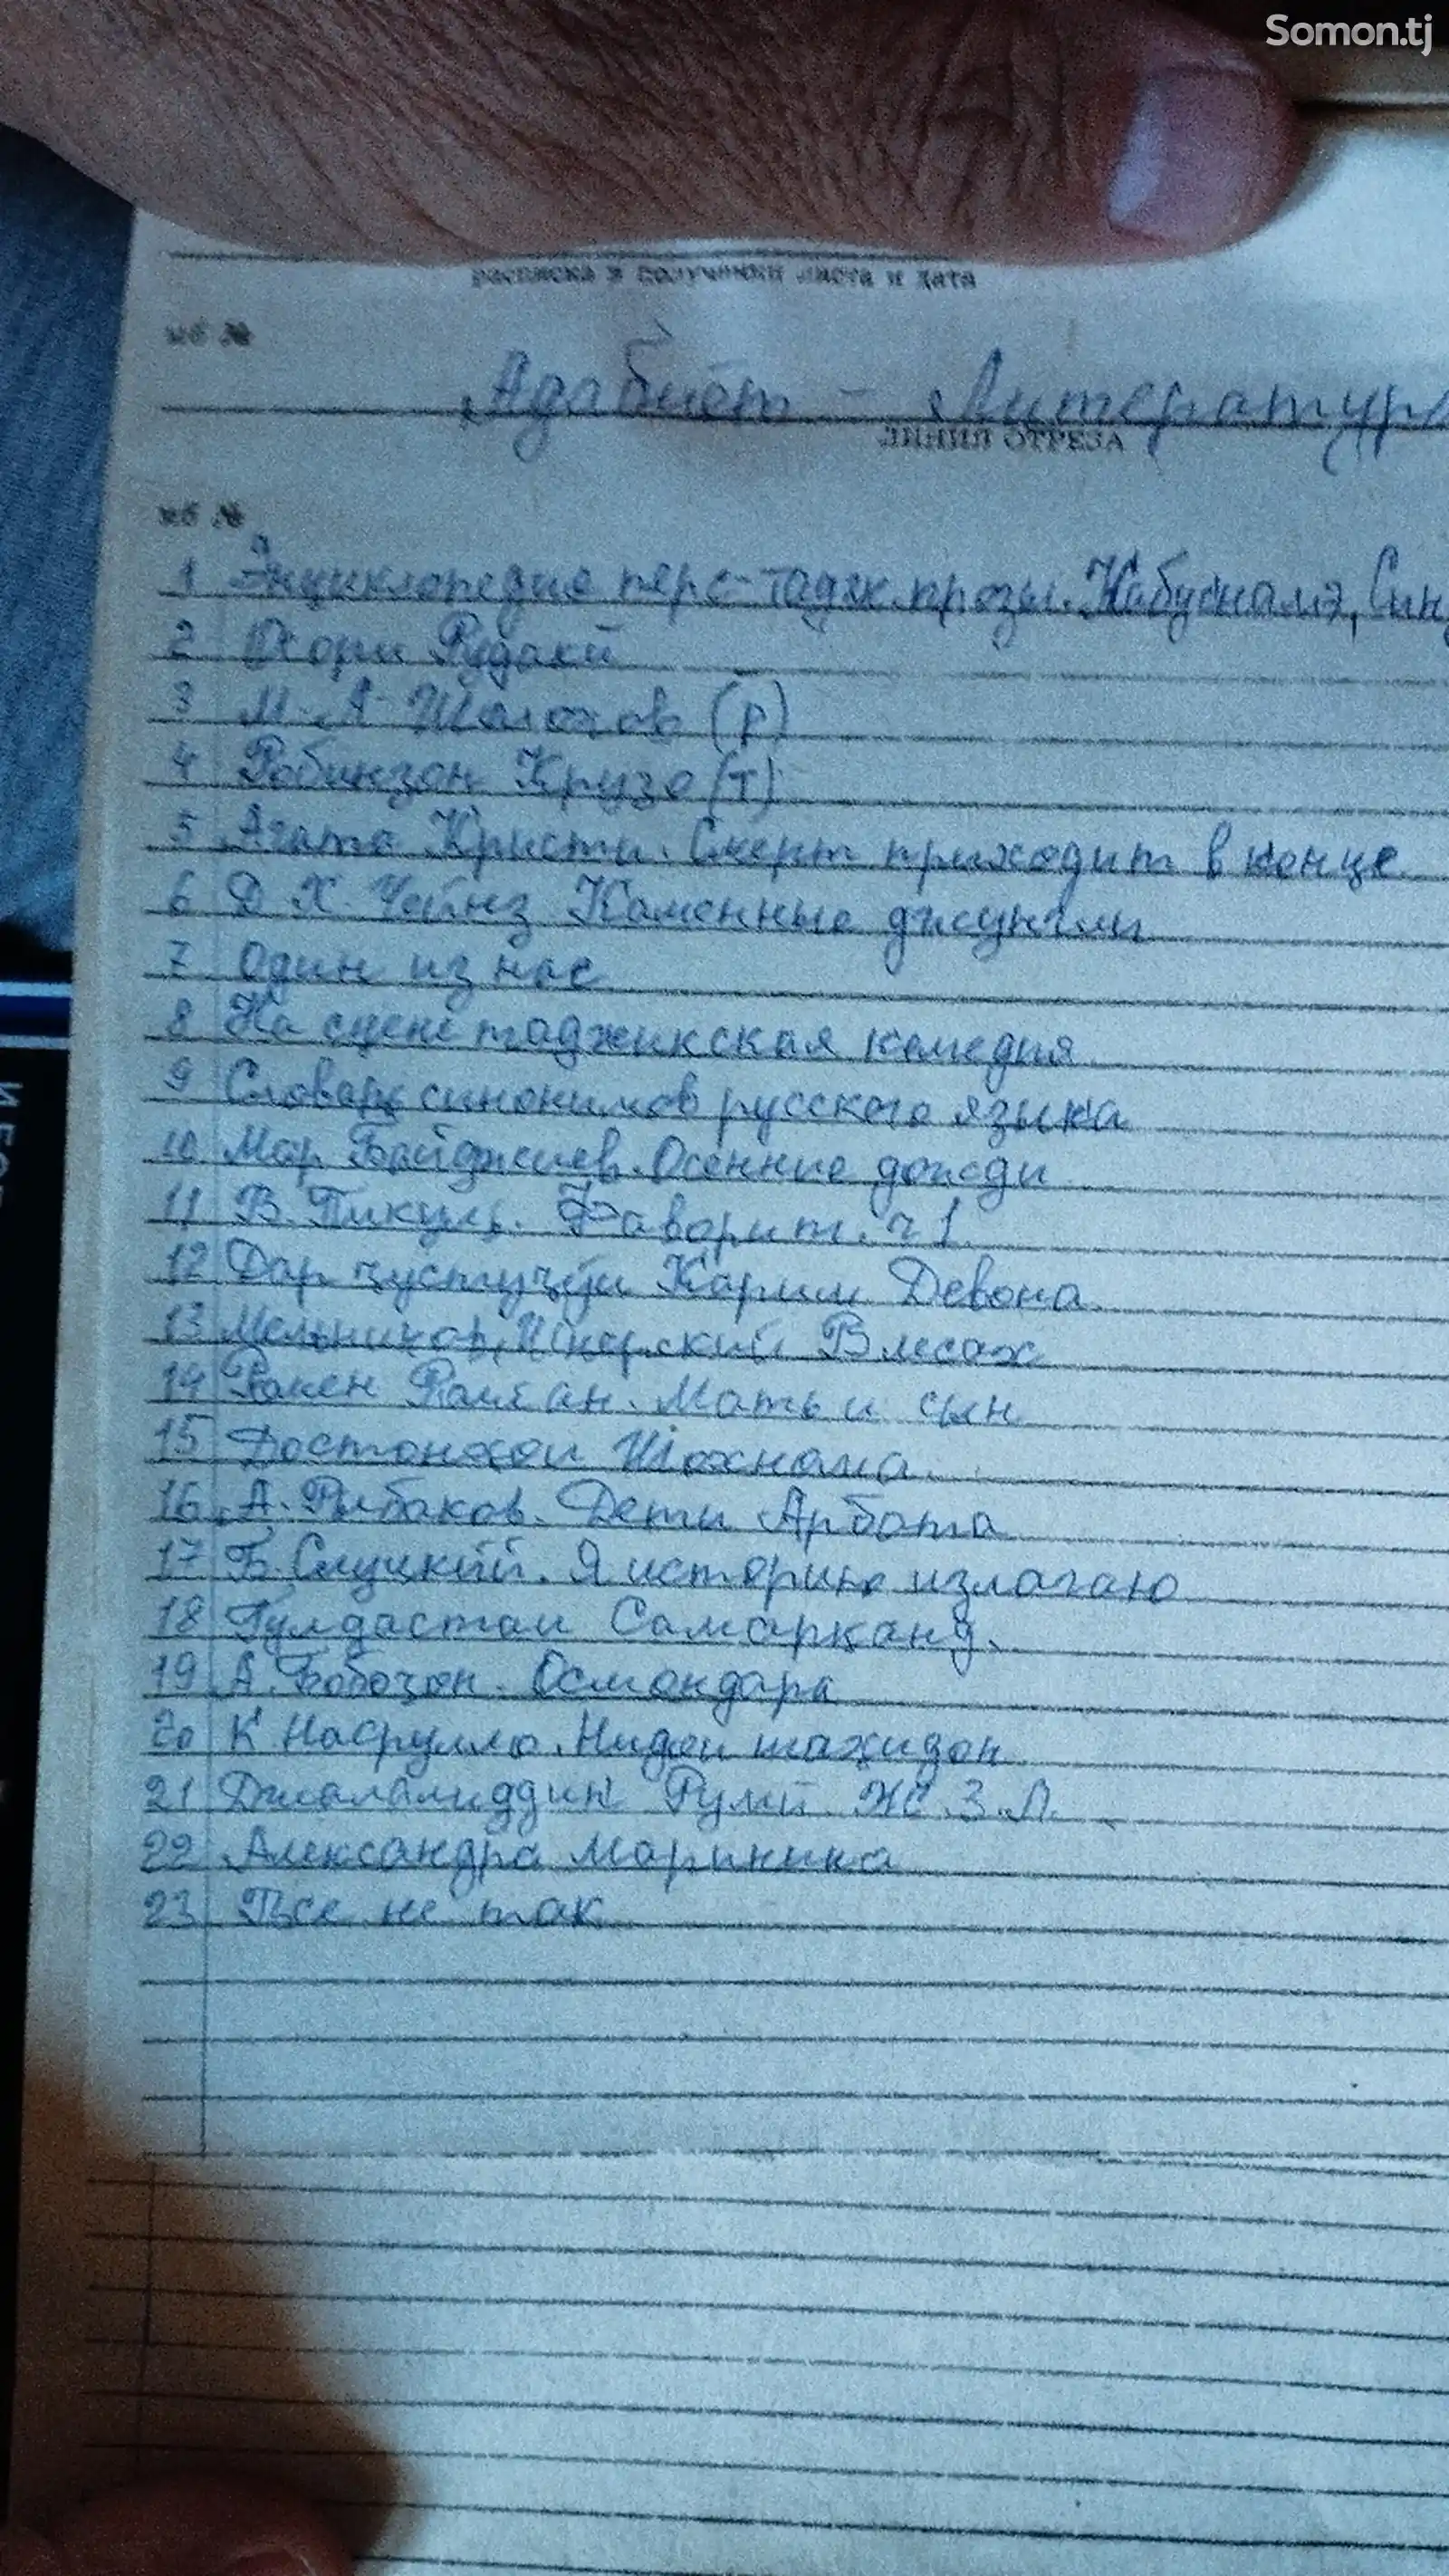 Somon.tj
расписка в получении листа и дата
Адабиёт – Литература
ЛИНИЯ ОТРЕЗА
1 Энциклопедия перс-тадж. прозы. Кабуснамэ, Синд
2 Осори Рудаки
3 М. А. Шолохов (р)
4 Робинзон Крузо (т)
5 Агата Кристи. Смерт приходит в конце
6 Д Х. Чейнз Каменные джунгли
7 Один из нас
8 На сцене таджикская комедия
9 Словарь синонимов русского языка
10 Мар Байджиев. Осенние дожди
11 В. Пикуль. Фаворит. ч 1.
12 Дар ҷустуҷӯи Карим Девона
13 Мельников, Печерский В лесах
14 Ромен Роллан. Мать и сын
15 Достонҳои Шохнома.
16 А. Рыбаков. Дети Арбата
17 Б. Слуцкий. Я историю излагаю
18 Гулдастаи Самарқанд.
19 А. Бобоҷон. Осмондара
20 К Насрулло. Нидои шаҳидон
21 Джалалиддин Руми Ж. З. Л.
22 Александра Маринина
23 Все не так